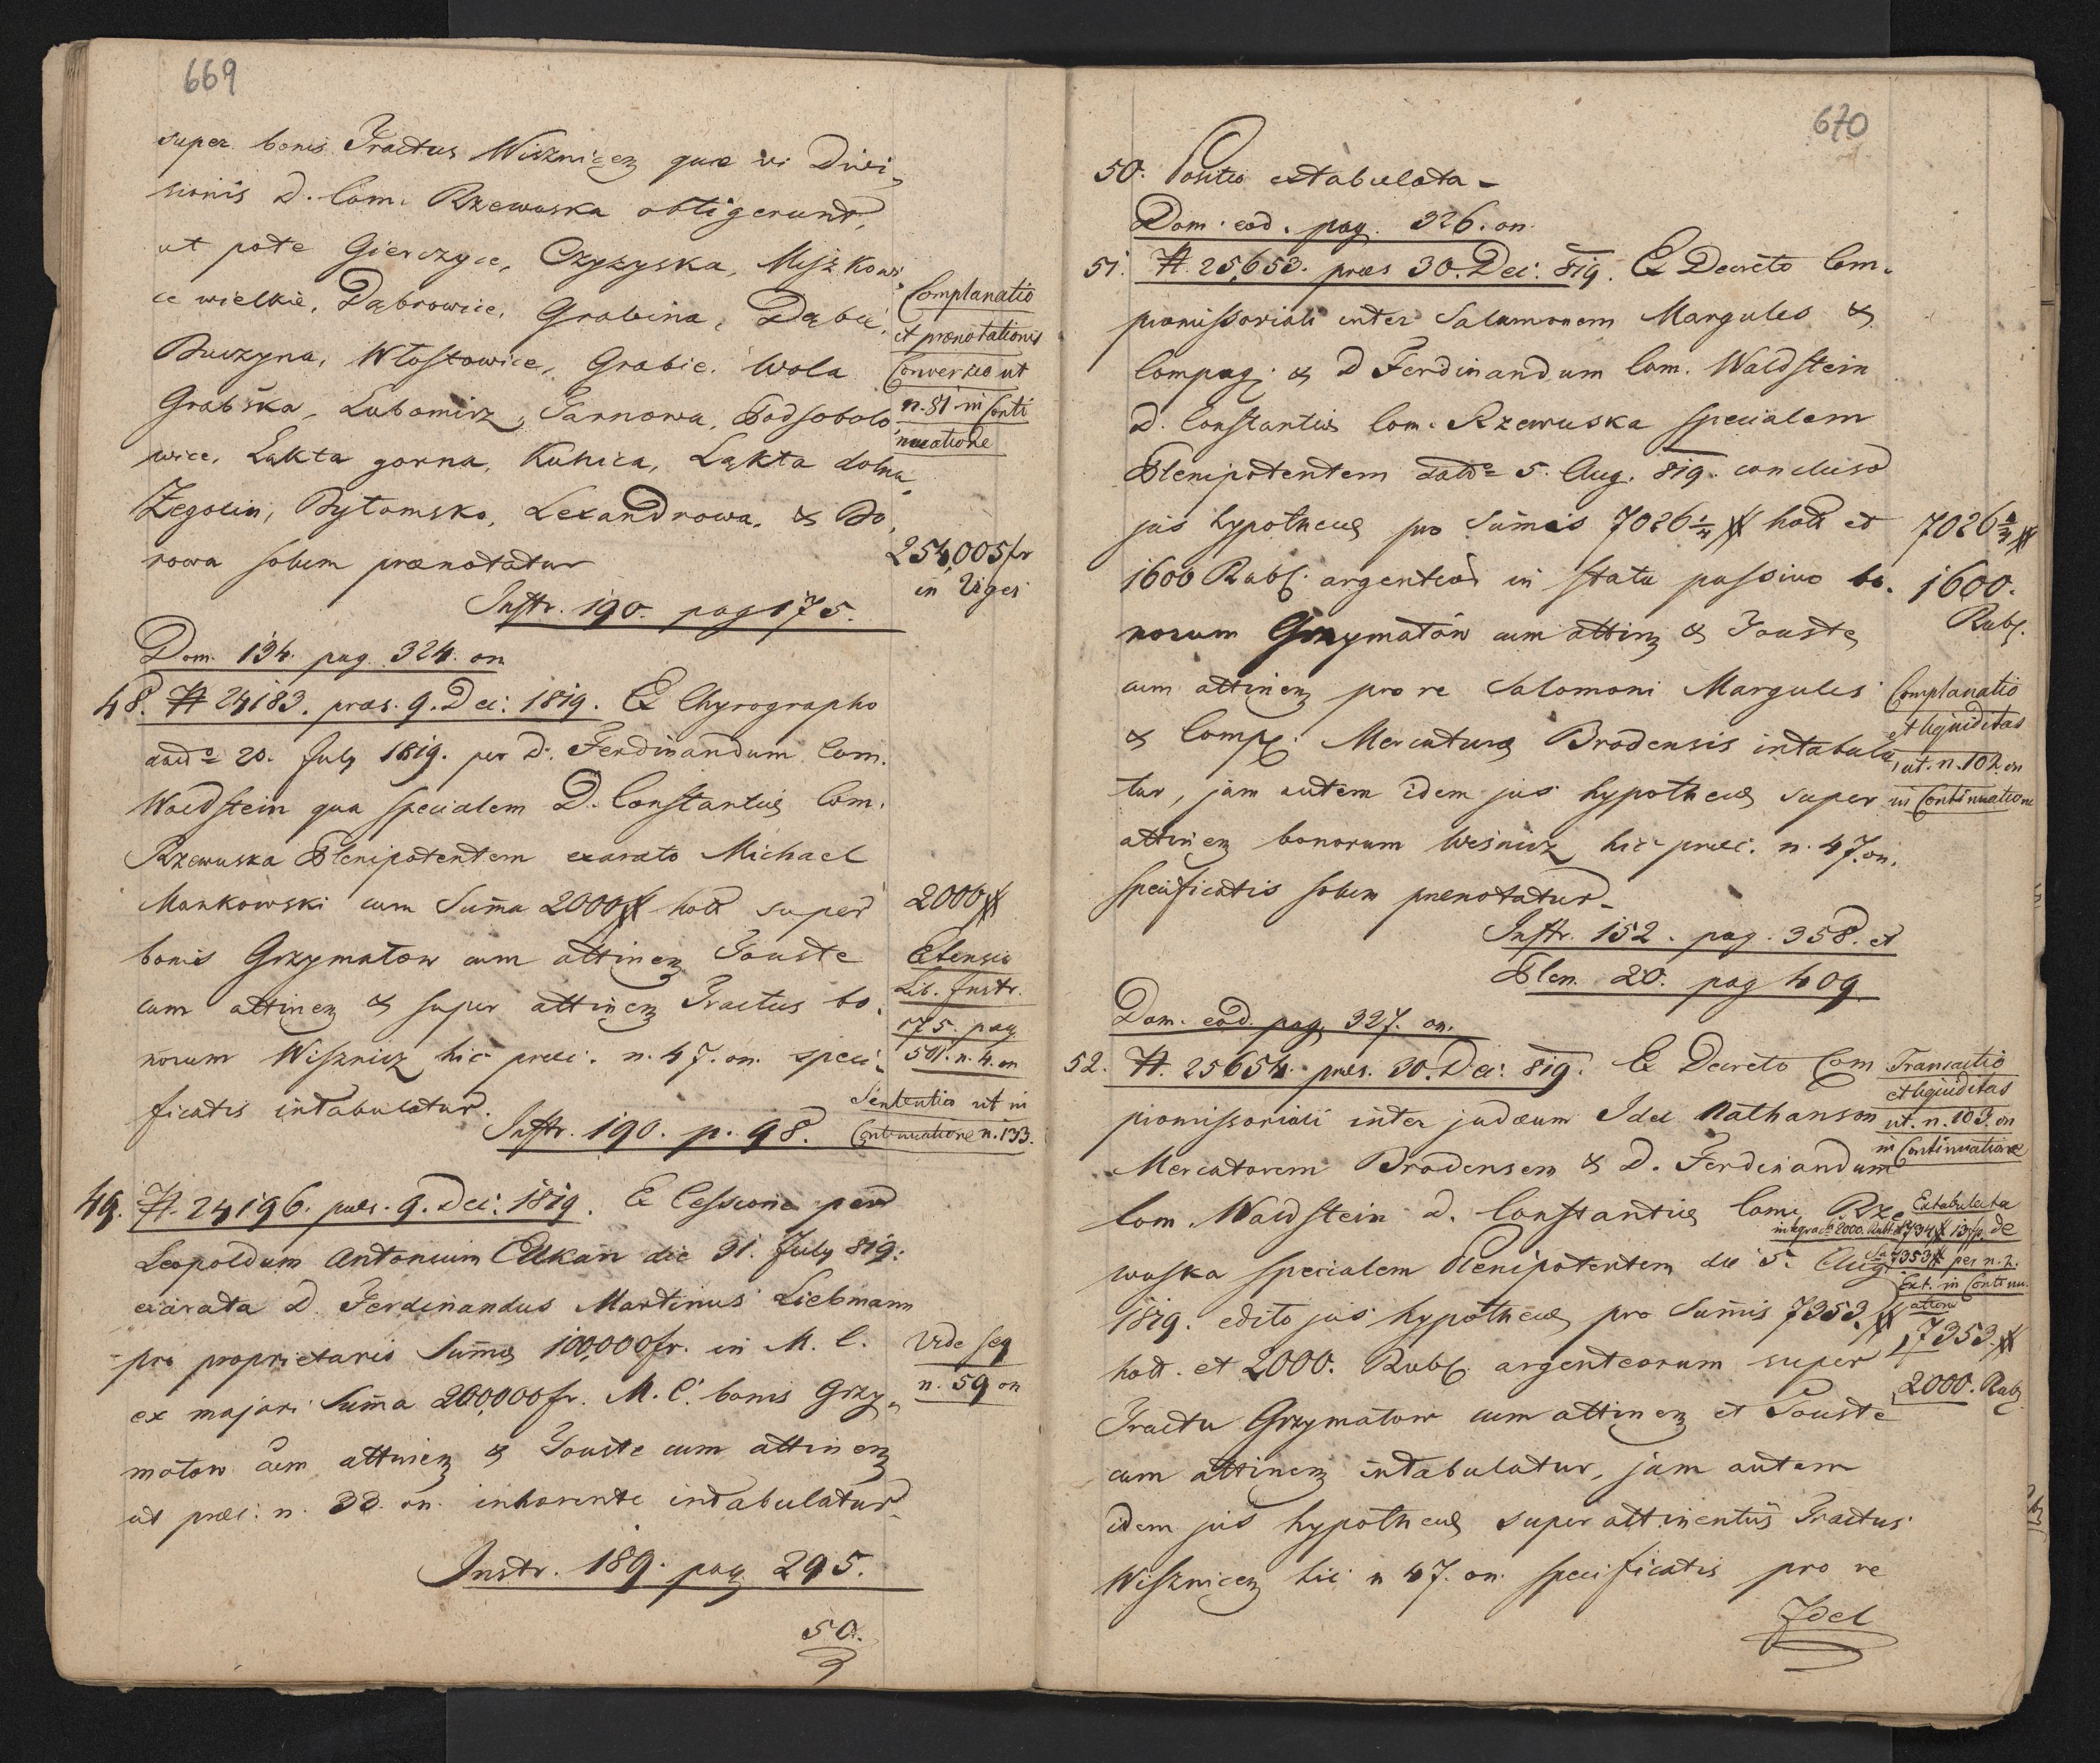 669
super bonis Tractus Wisznicen quæ vi Divi„
sionis D. Com. Rzewuska obtigerunt,
ut pote Gierczyce, Czyzyska, Myszkowi„
ce wielkie, Dąbrowice, Grabina, Dąbie,
Buczyna, Włostowice, Grabie, Wola
Grabska, Lubomirz, Tarnowa, Podsobolo„
wice, Łąkta gorna, Kunica, Łąkta dolna,
Żegocin, Bytomsko, Lexandrowa, & Bo„
rowa solum prænotatur
Complanatio
et prænotationis
Conversio ut
n. 81 in Conti
nuatione
254,005 fr
in
Instr. 190. pag 175.
Dom. 134. pag. 324. on
48. # 24183. præs. 9. Dec: 1819. Ex Chyrographo
20. July 1819. per D. Ferdinandum Com.
Waldstein qua specialem D. Constantiæ Com.
Rzewuska Plenipotentem exarato Michael
Mankowski cum Summa 2000 # holl super
bonis Grzymatow cum attinen Touste
cum attinen & super attinen Tractus bo„
norum Wisznicz hic præc. n. 47. on. speci„
ficatis intabulatur.
2000 #
Extensio
Lib. Instr.
175. pag
501. n. 4. on
Sententia ut in
Continuatione n. 133.
Instr. 190. p. 98.
49. # 24196. præs. 9. Dec: 1819. Ex Cessione per
Leopoldum Antonium Elkan die 31. July 819.
exarata D. Ferdinandus Martinus Liebmann
pro proprietario Summæ 100,000 fr. in M. C.
ex majori Summa 200,000 fr. M. C. bonis Grzy„
matow cum attinen & Touste cum attinen
ut præc: n. 33. on. inhærente intabulatur
Vide seq
n. 59 on
Instr. 189. pag 295.
50.
670
50. Positio extabulata –
Dom. eod. pag. 326. on.
51. # 25,653. præs 30. Dec: 819. Ex Decreto Com„
promissoriali inter Salamonem Margules &
Compag: & D Ferdinandum Com. Waldstein
D. Constantiæ Com. Rzewuska specialem
Plenipotentem 5. Aug. 819. concluso
jus hypothecæ pro Summis 7026 1/4 # holl et
1600 Rubl. argenteor in statu passivo bo„
norum Grzymatów cum attinen & Touste
cum attinen pro re Salomoni Margules
& Comp. Mercaturæ Brodensis intabula„
tur, jam autem idem jus hypothecæ super
attinen bonorum Wisnicz hic præc. n. 47. on.
specificatis solum prænotatur –
7026 1/4 #
1600.
Rubl.
Complanatio
et liquiditas
ut. n. 102. on
in Continuatione
Instr. 152. pag. 358. et
Plen. 20. pag 409
Dom. eod. pag. 327. on.
52. # 25654. præs. 30. Dec: 819. Ex Decreto Com
promissoriali inter judæum Idel Nathanson
Mercatorem Brodensem & D. Ferdinandum
Com. Waldstein D. Constantiæ Com. Rze
wuska specialem Plenipotentem die 5. Aug
1819. edito jus hypothecæ pro Summis 7353. #
holl. et 2000. Rubl. argenteorum super
Tractu Grzymatow cum attinen et Touste
cum attinen intabulatur, jam autem
idem jus hypothecæ super attinentiis Tractus
Wisznicen hic n 47. on. specificatis pro re
Transactio
et liquiditas
ut. n. 103. on
in Continuatione
Extabulata
2000. Rubl. de
7353 # per n. 2.
Ext. in Continu
atione
7353. #
2000. Rubl
Idel